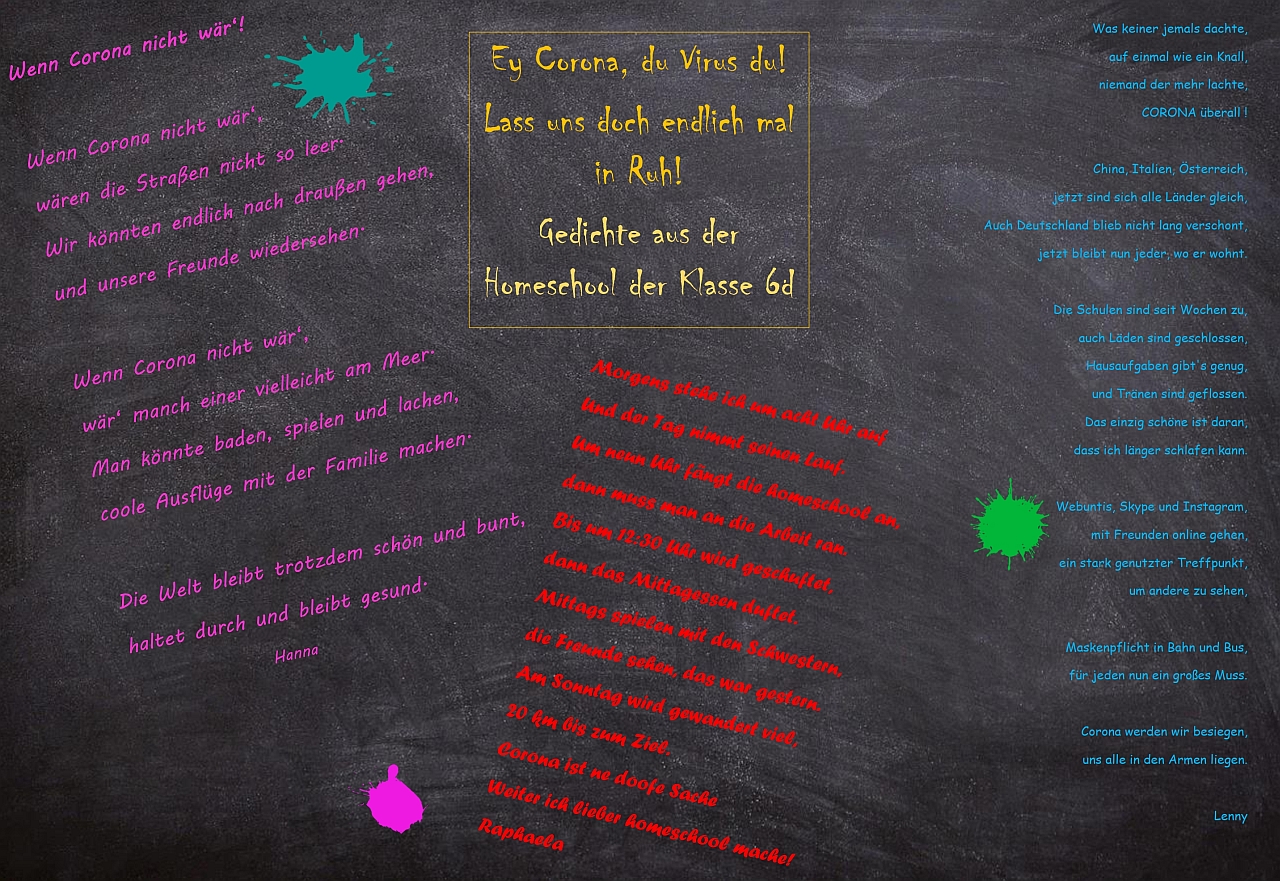 Wenn Corona nicht wär'!
Wenn Corona nicht wär',
wären die Straßen nicht so leer.
Wir könnten endlich nach draußen gehen,
und unsere Freunde wiedersehen.
Wenn Corona nicht wär',
wär' manch einer vielleicht am Meer.
Man könnte baden, spielen und lachen,
coole Ausflüge mit der Familie machen.
Die Welt bleibt trotzdem schön und bunt,
haltet durch und bleibt gesund.
Hanna
Ey Corona, du Virus du!
Lass uns doch endlich mal
in Ruh!
Gedichte aus der
Homeschool der Klasse 6d
Morgens stehe ich um acht Uhr auf
Und der Tag nimmt seinen Lauf.
Um neun Uhr fängt die homeschool an,
dann muss man an die Arbeit ran.
Bis um 12:30 Uhr wird geschuftet,
dann das Mittagessen duftet.
Mittags spielen mit den Schwestern,
die Freunde sehen, das war gestern.
Am Sonntag wird gewandert viel,
20 km bis zum Ziel.
Corona ist ne doofe Sache
Weiter ich lieber homeschool mache!
Raphaela
Was keiner jemals dachte,
auf einmal wie ein Knall,
niemand der mehr lachte,
CORONA überall !
China, Italien, Österreich,
jetzt sind sich alle Länder gleich,
Auch Deutschland blieb nicht lang verschont,
jetzt bleibt nun jeder, wo er wohnt.
Die Schulen sind seit Wochen zu,
auch Läden sind geschlossen,
Hausaufgaben gibt's genug,
und Tränen sind geflossen.
Das einzig schöne ist daran,
dass ich länger schlafen kann.
Webuntis, Skype und Instagram,
mit Freunden online gehen,
ein stark genutzter Treffpunkt,
um andere zu sehen,
Maskenpflicht in Bahn und Bus,
für jeden nun ein großes Muss.
Corona werden wir besiegen,
uns alle in den Armen liegen.
Lenny